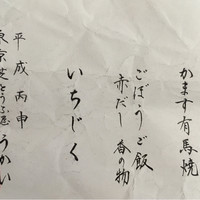 かます有馬焼
ごぼうご飯
赤だし 香の物
いちじく
平成丙申
東京芝とうふ屋うかい